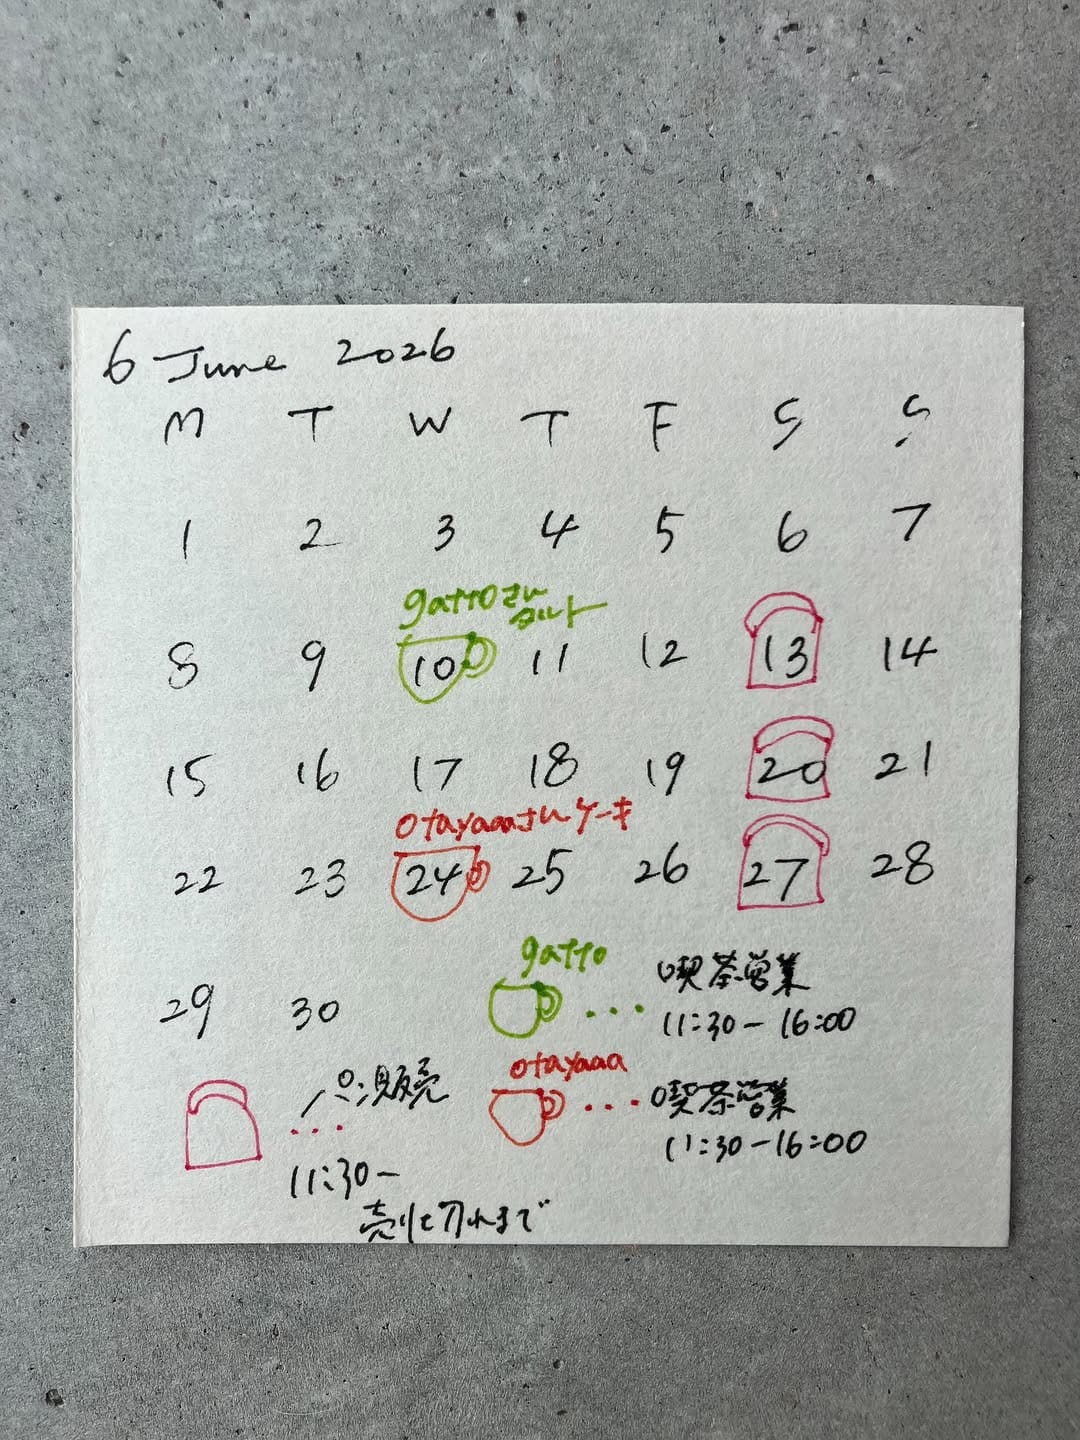 6 June 2026
M T W T F S S
1 2 3 4 5 6 7
gattoさん
タルト
8 9 10 11 12 13 14
15 16 17 18 19 20 21
otayaaaさんケーキ
22 23 24 25 26 27 28
29 30
gatto
... 喫茶営業
11:30-16:00
otayaaa
... 喫茶営業
11:30-16:00
... パン販売
11:30-
売り切れまで